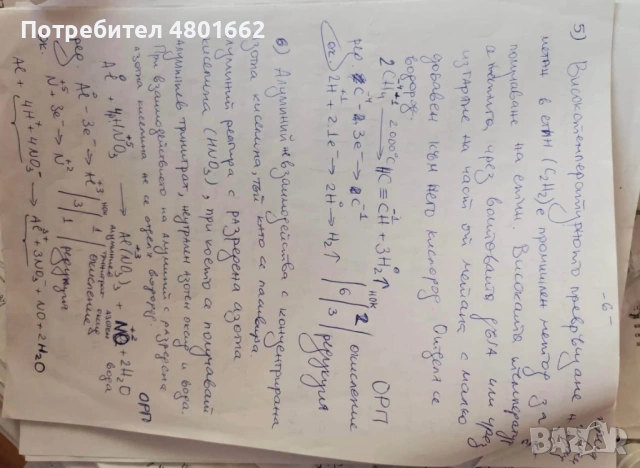 Потребител 4801662
-6-
5) Високотемпературното превръщане на
метан в етин (C₂H₂) е промишлен метод за
получаване на етин. Високата температура
се постига чрез волтова дъга или чрез
изгаряне на част от метана с малко
добавен към него кислород. Отделя се
водород.
2CH₄ 2000°C → HC≡CH + 3H₂↑ ОРП
ред. 2C - 2.3e⁻ → 2C⁻¹ |6| 2 / окисление
ок. 2H + 2.1e⁻ → 2H → H₂↑ |3| / редукция
6) Алуминият не взаимодейства с концентрирана
азотна киселина, тъй като се пасивира.
Алуминият реагира с разредена азотна
киселина (HNO₃), при което се получават
алуминиев тринитрат, неутрален азотен оксид и вода.
При взаимодействието на алуминий с разредена
азотна киселина не се отделя водород.
Al + 4HNO₃ → Al(NO₃)₃ + NO + 2H₂O ОРП
алуминиев тринитрат азотен оксид вода
ред. Al - 3e⁻ → Al⁺³ |3| 1 | 1 / окисление
ок. N + 3e⁻ → N⁺² |3| 1 / редукция
Al + 4H⁺ + 4NO₃⁻ → Al³⁺ + 3NO₃⁻ + NO + 2H₂O
BAZAR